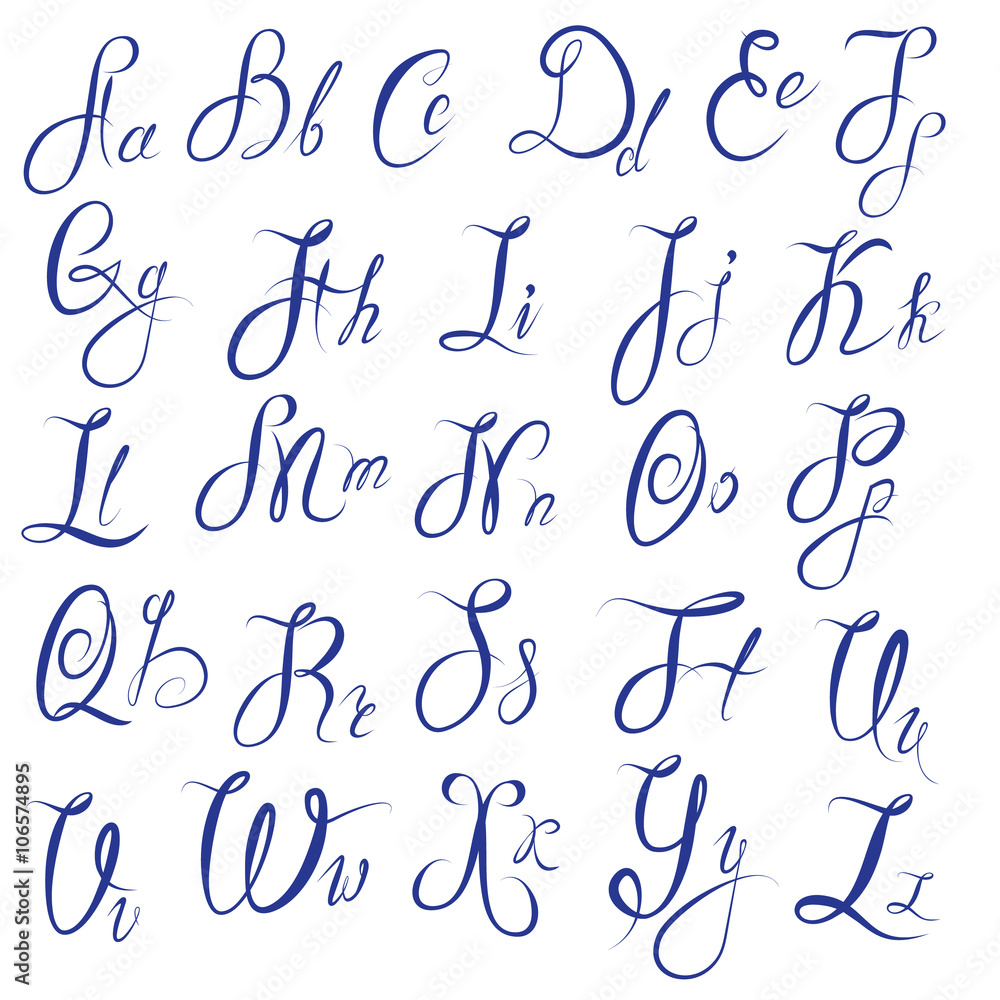 Aa Bb Cc Dd Ee Ff
Gg Hh Ii Jj Kk
Ll Mm Nn Oo Pp
Qq Rr Ss Tt Uu
Vv Ww Xx Yy Zz
Adobe Stock | #106574895